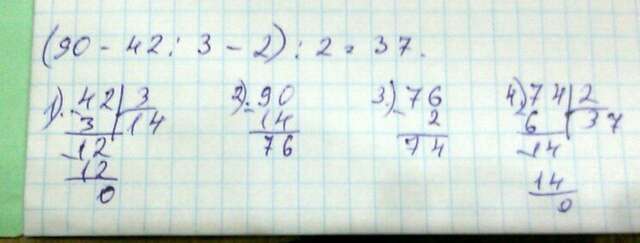 (90 - 42 : 3 - 2) : 2 = 37.
1). 42 | 3 2) - 90 3.) 76 4) 74 | 2
- 3 14 14 - 2 - 6 37
- 12 76 74 - 14
12 14
0 0